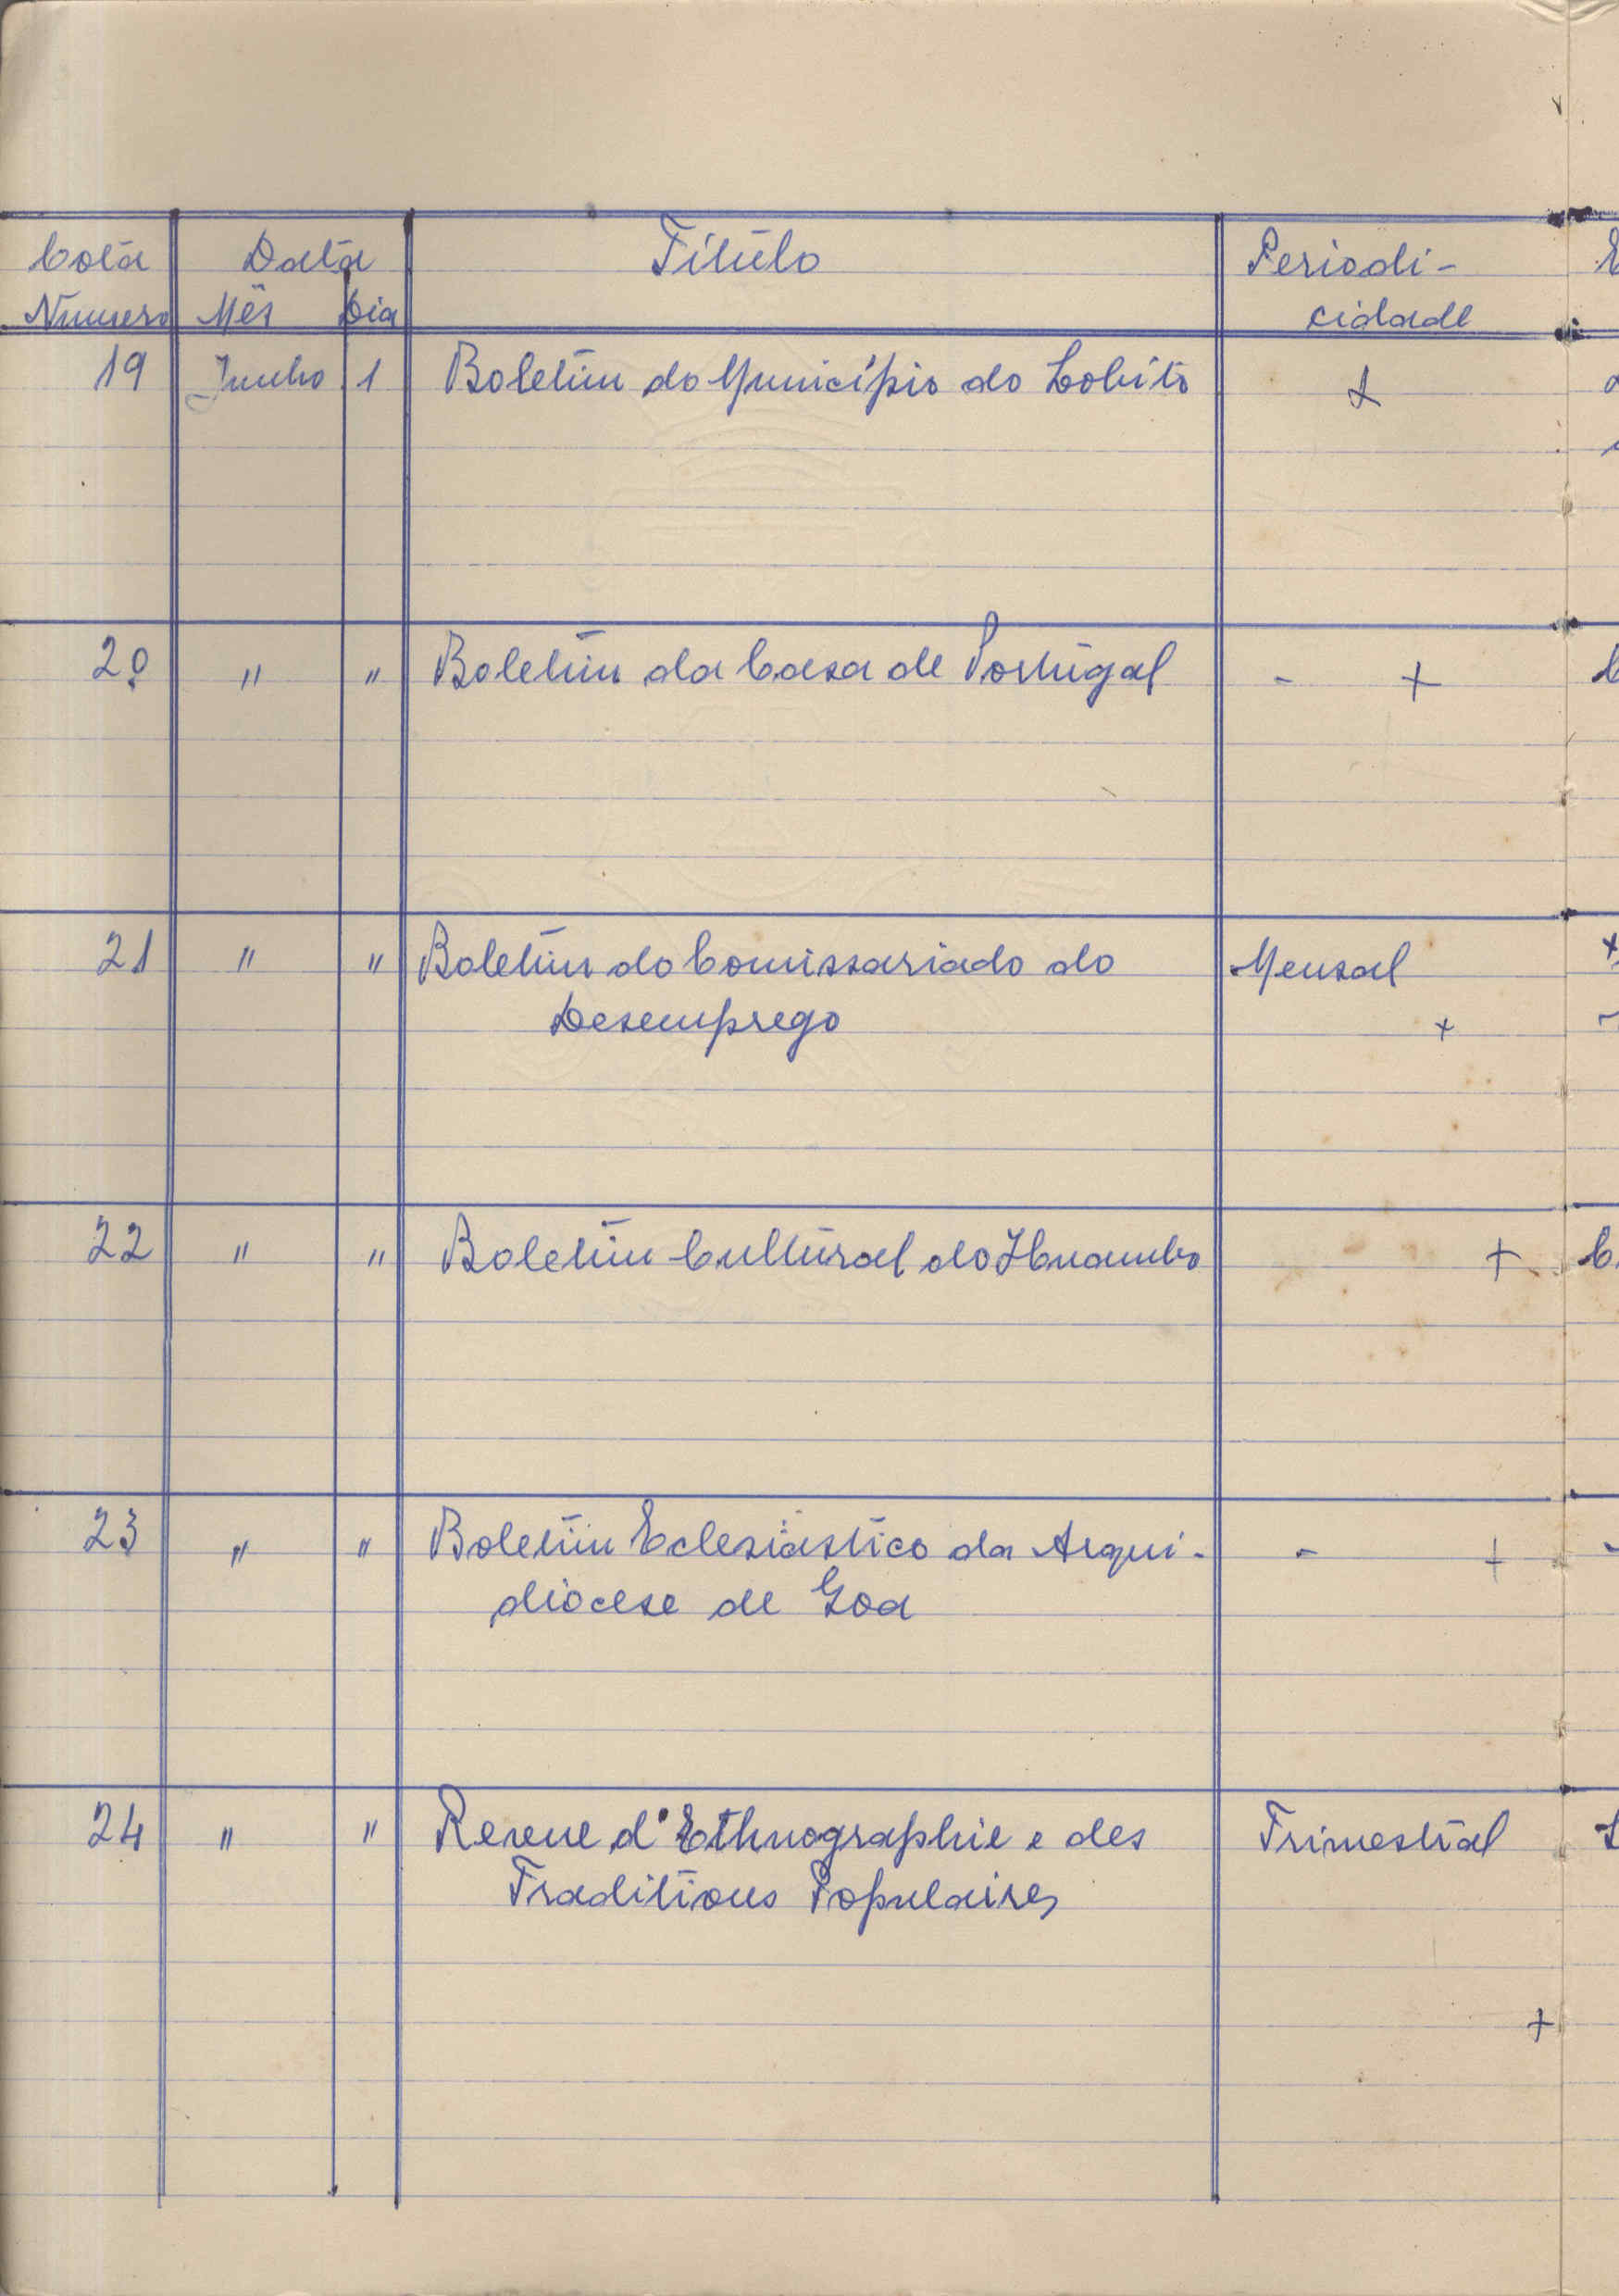 Cota Data Título Periodi-
Número Mês Dia cidade
19 Junho 1 Boletim do Município do Lobito +
20 " " Boletim da Casa de Portugal - +
21 " " Boletim do Comissariado do Mensal
Desemprego +
22 " " Boletim Cultural do Huambo +
23 " " Boletim Eclesiástico da Arqui- - +
diocese de Goa
24 " " Revue d'Ethnographie e des Trimestral
Traditions Populaires
+